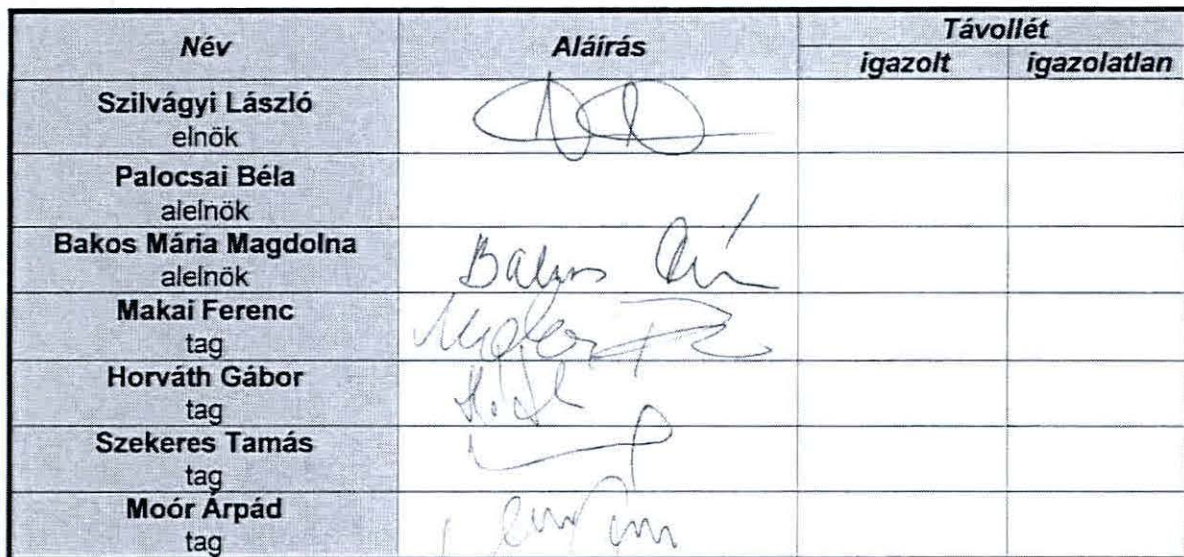 Név Aláírás Távollét
igazolt igazolatlan
Szilvágyi László
elnök
Palocsai Béla
alelnök
Bakos Mária Magdolna
alelnök
Bakos
Makai Ferenc
tag
Horváth Gábor
tag
Szekeres Tamás
tag
Moór Árpád
tag